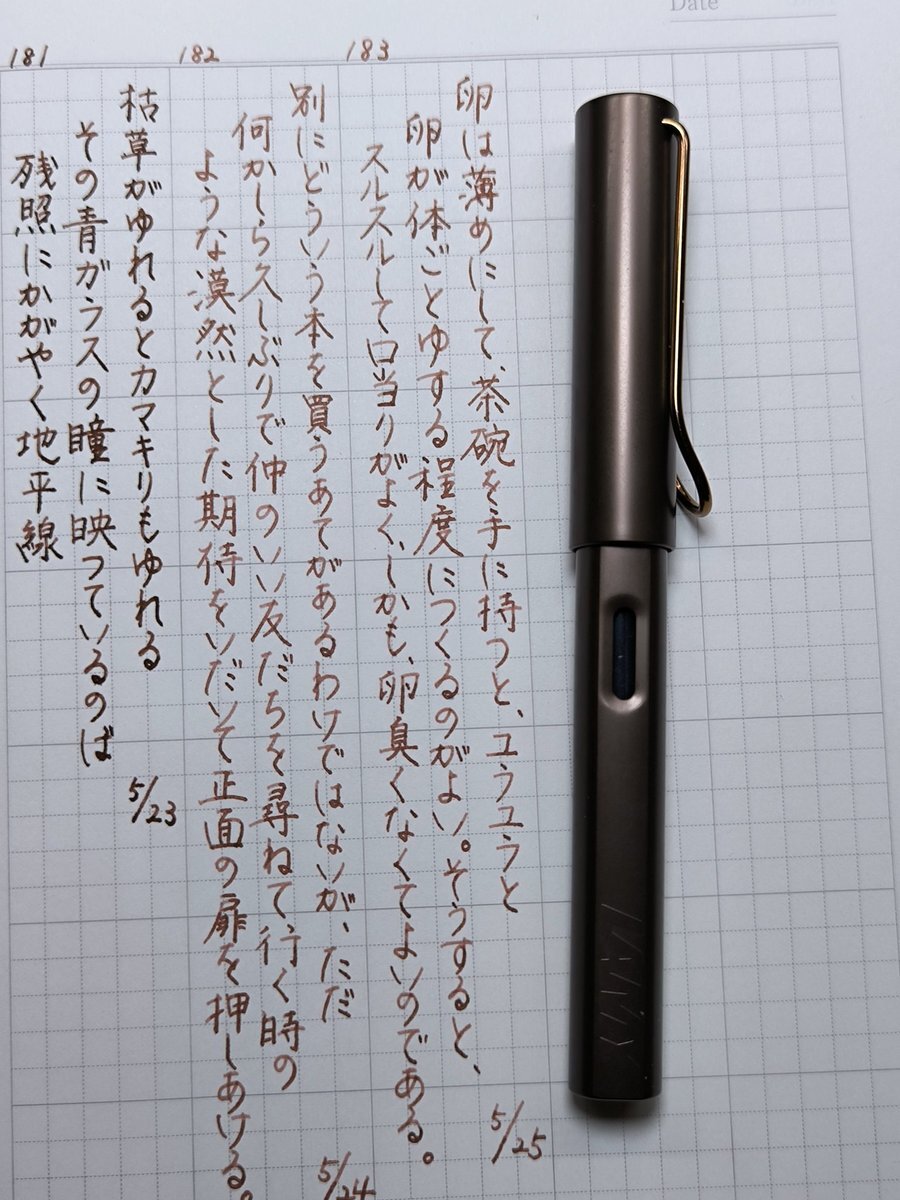 Date
183
卵は薄めにして、茶碗を手に持つと、ユラユラと
卵が体ごとゆする程度につくるのがよい。そうすると、
スルスルして口当りがよく、しかも、卵臭くなくてよいのである。
5/25
182
別にどういう本を買うあてがあるわけではないが、ただ
何かしら久しぶりで仲のいい友だちを尋ねて行く時の
ような漠然とした期待をいだいて正面の扉を押しあける。
5/24
181
枯草がゆれるとカマキリもゆれる
その青ガラスの瞳に映っているのは
残照にかがやく地平線
5/23
LAMY